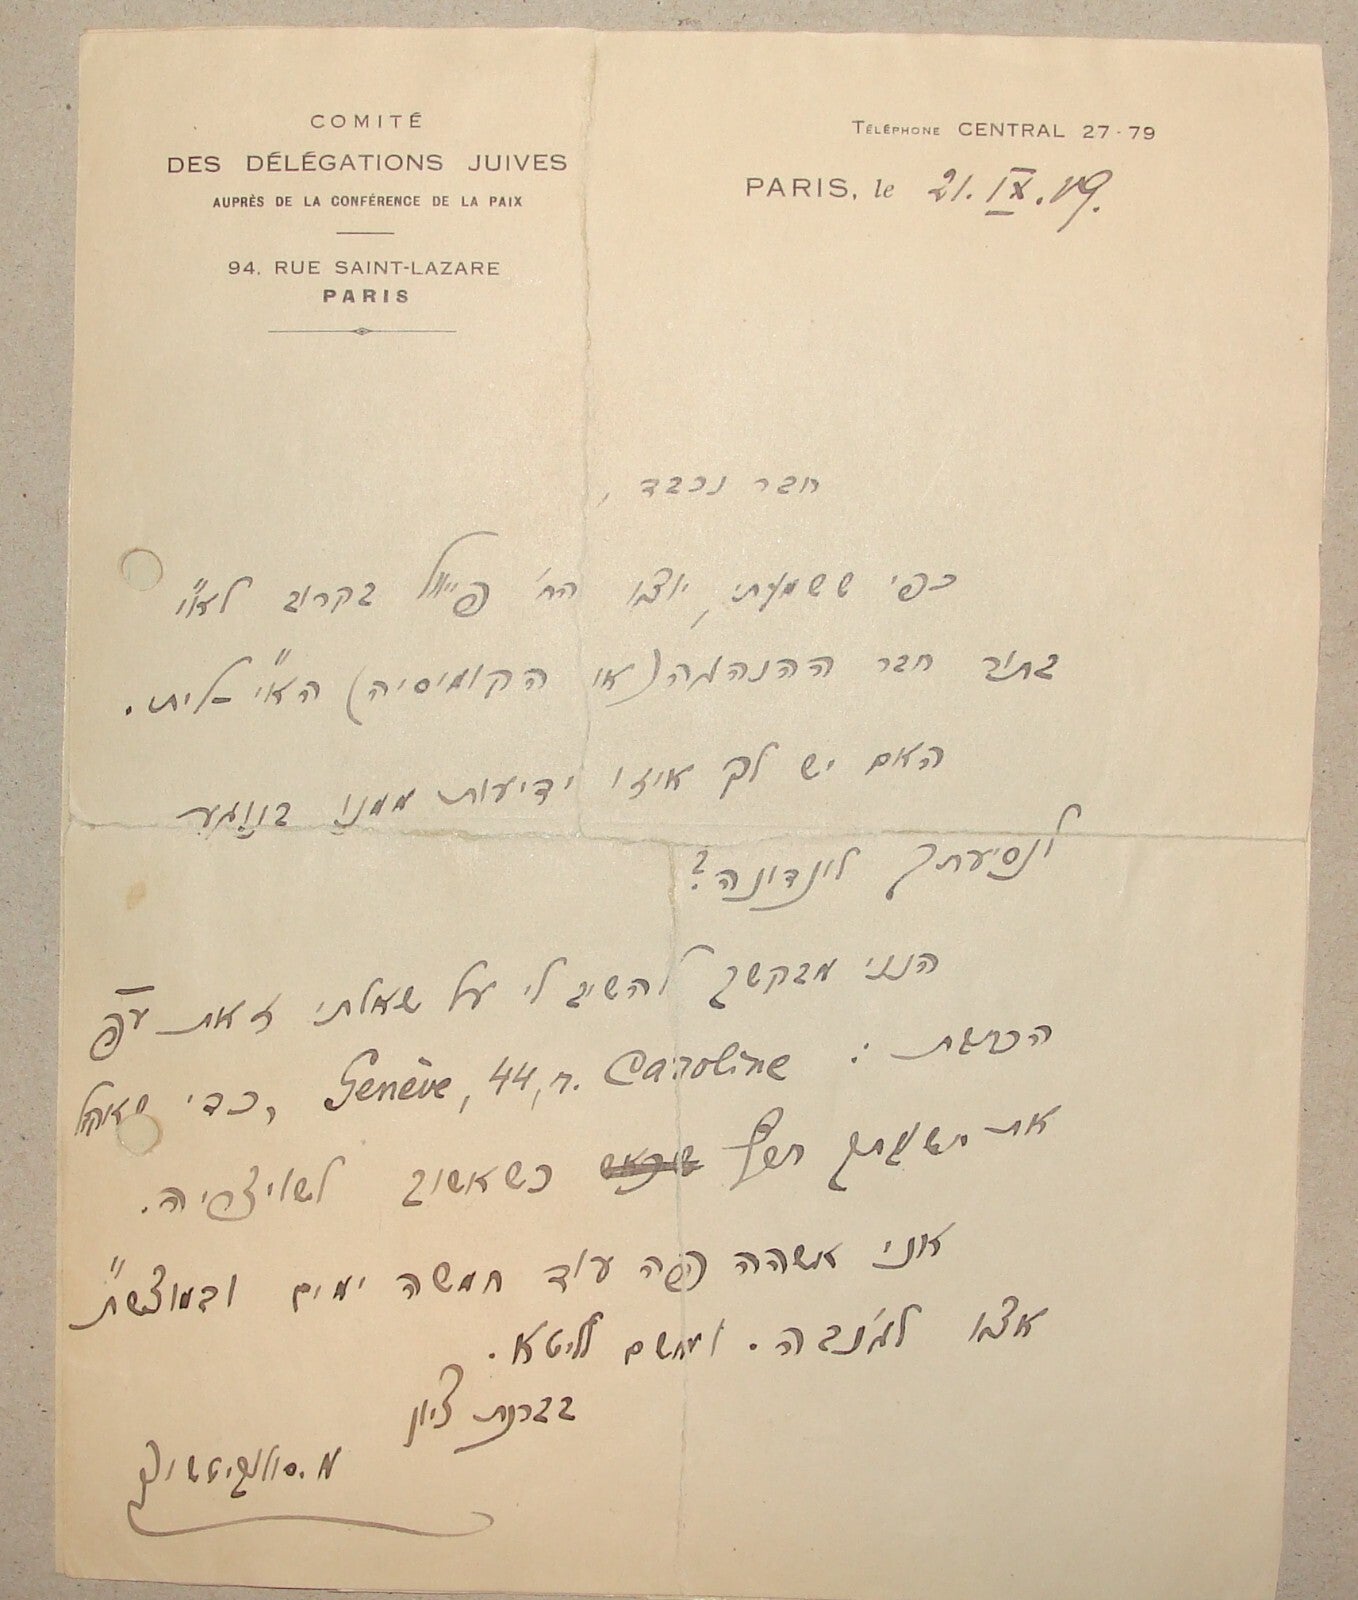 COMITÉ
DES DÉLÉGATIONS JUIVES
AUPRÈS DE LA CONFÉRENCE DE LA PAIX
94. RUE SAINT-LAZARE
PARIS
TÉLÉPHONE CENTRAL 27-79
PARIS, le 21. IX. 19.
חבר נכבד,
כפי ששמעתי, יוצא הח' פייוול בקרוב לא"י
בתור חבר ההנהגה (או הקומיסיה) הא"י-לית.
האם יש לך איזו ידיעות ממנו בנוגע
לנסיעתך לונדונה?
הנני מבקשך להשיב לי על שאלתי זאת ע"פ
הכתבת: Genève, 44, r. Caroline, כדי שאוכל
את תשובתך תיכף כשאשוב לשויצריה.
אני אשהה פה עוד חמשה ימים ובמוצש"ק
אצא לג'נבה. ומשם לליטא.
בברכת ציון
מ. סולוביטשיק